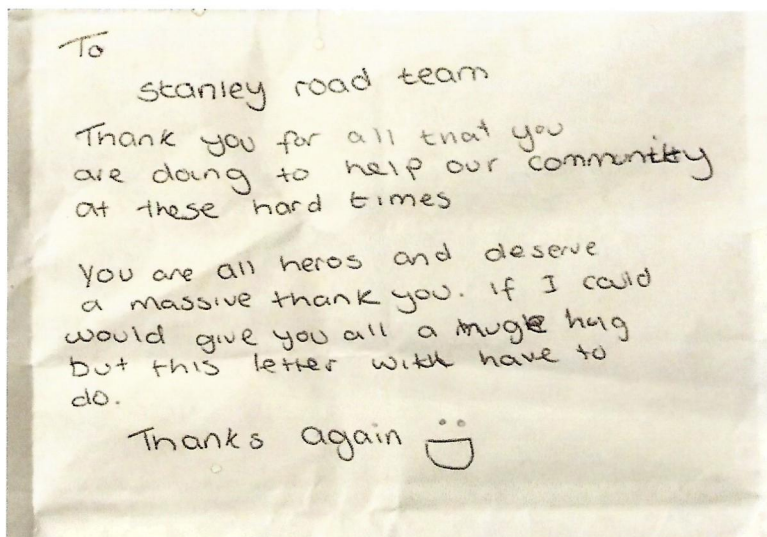 To
Stanley road team
Thank you for all that you
are doing to help our community
at these hard times
You are all heros and deserve
a massive thank you. If I could
would give you all a huge hug
but this letter will have to
do.
Thanks again